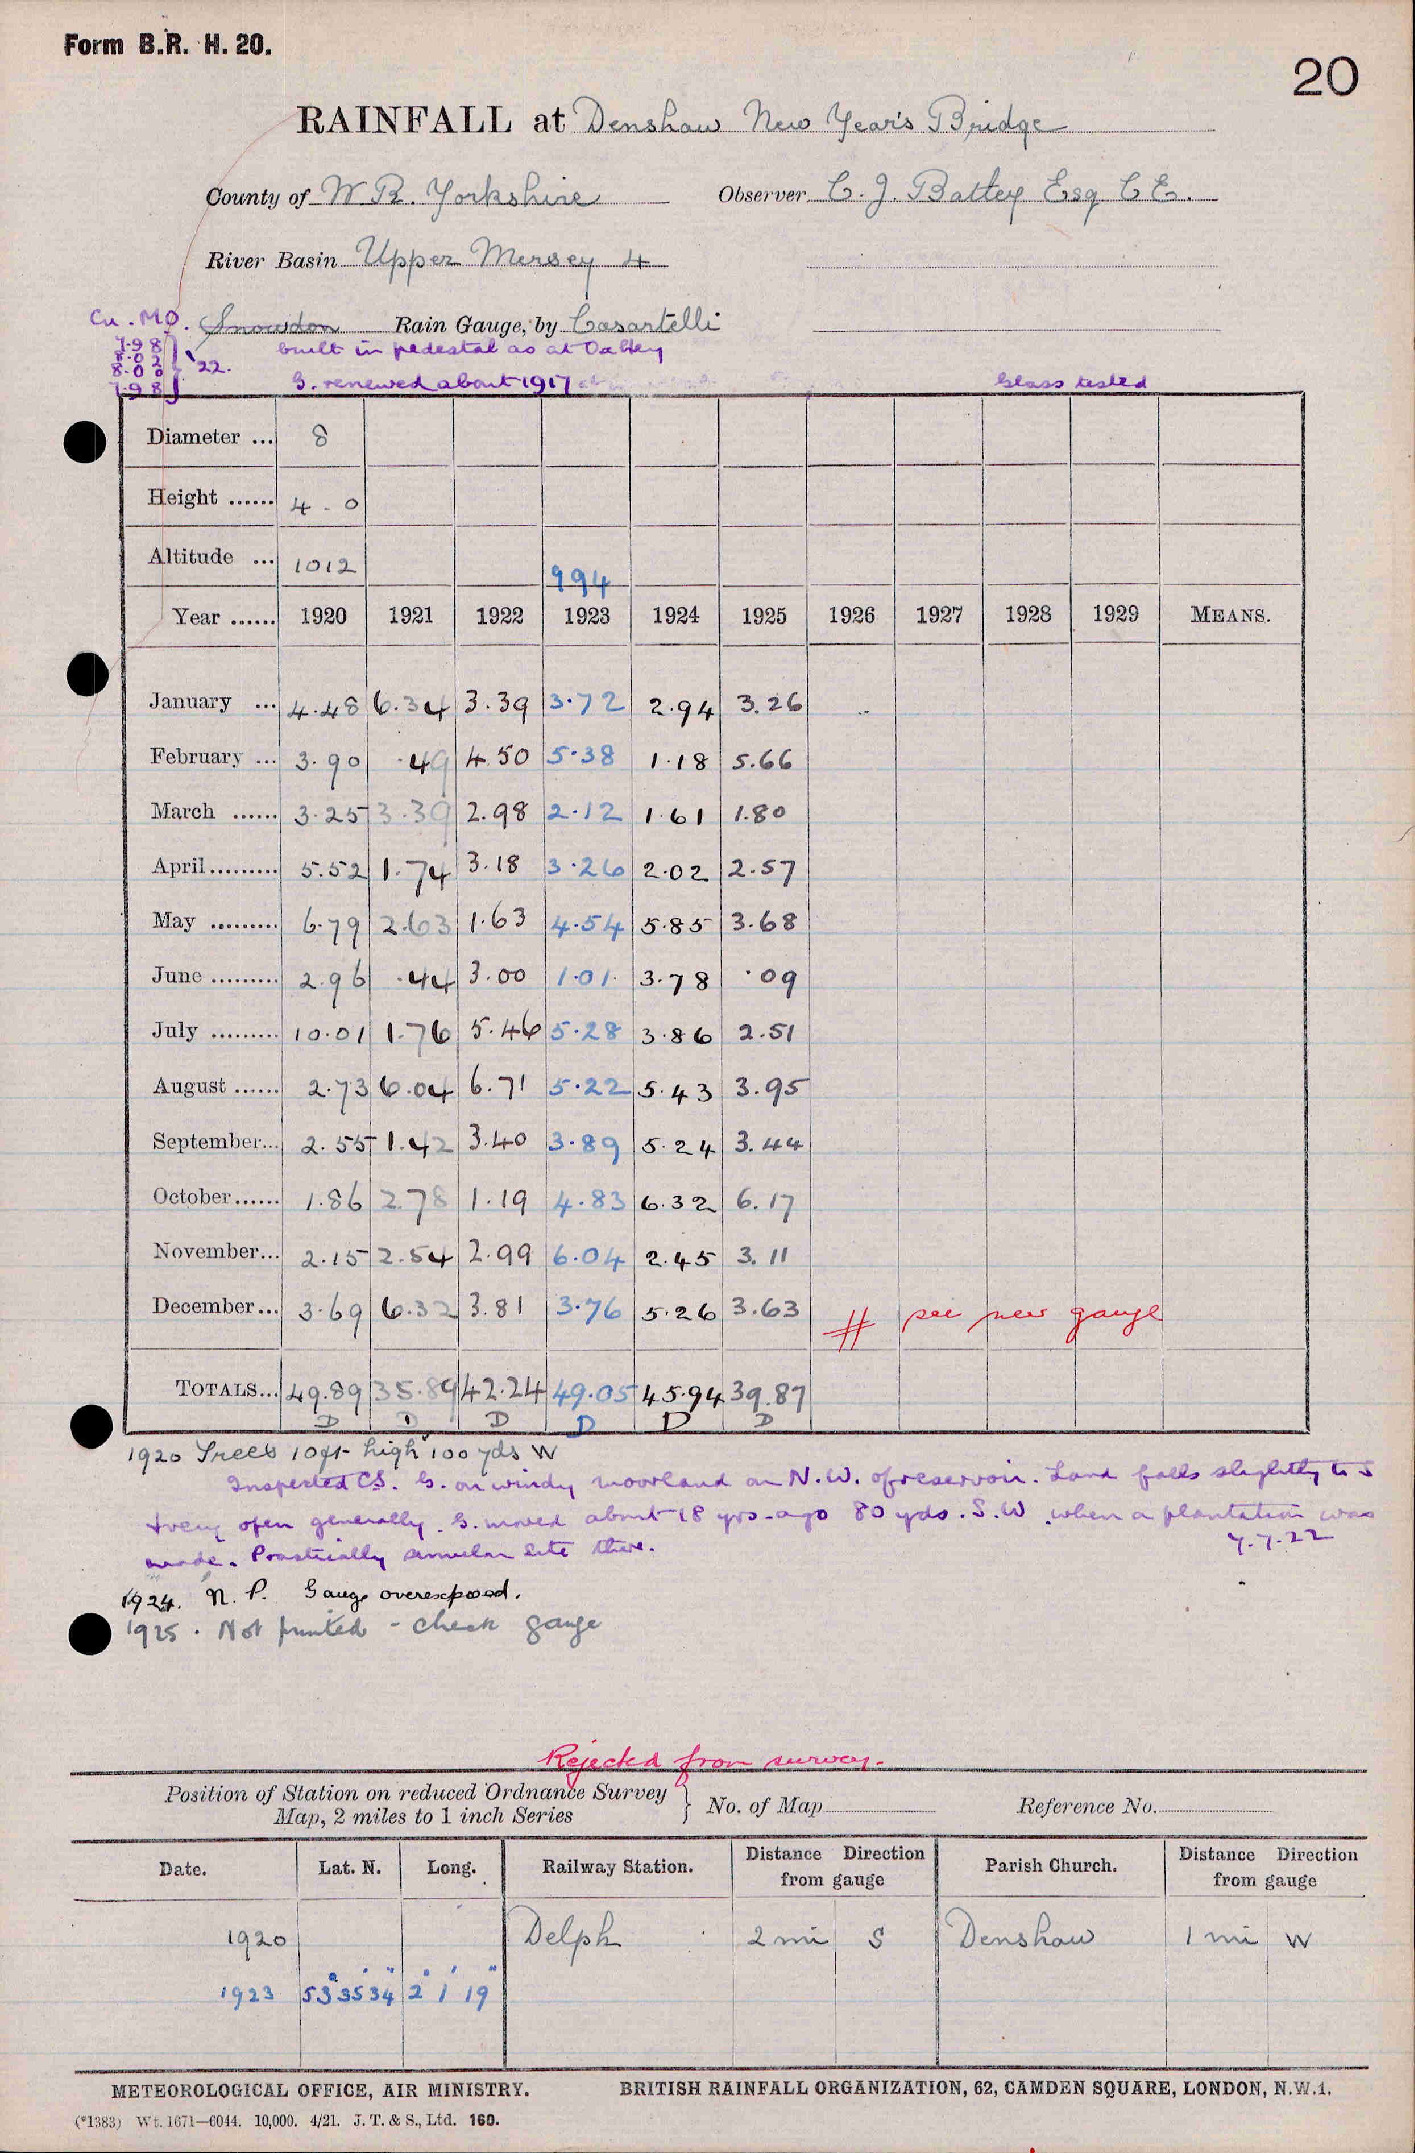 Form B.R. H. 20.
20
RAINFALL at Denshaw New Year's Bridge
County of W R. Yorkshire Observer C. J. Battey Esq C E.
River Basin Upper Mersey 4
Cu. M.O. Snowdon Rain Gauge, by Casartelli
7.98
8.02
8.00
7.98 } '22.
built in pedestal as at Oakley
G. renewed about 1917 Glass tested
Diameter ... 8
Height ...... 4 - 0
Altitude ... 1012 994
Year ...... 1920 1921 1922 1923 1924 1925 1926 1927 1928 1929 MEANS.
January ... 4.48 6.34 3.39 3.72 2.94 3.26
February ... 3.90 .49 4.50 5.38 1.18 5.66
March ...... 3.25 3.39 2.98 2.12 1.61 1.80
April......... 5.52 1.74 3.18 3.26 2.02 2.57
May ......... 6.79 2.63 1.63 4.54 5.85 3.68
June ......... 2.96 .44 3.00 1.01 3.78 .09
July ......... 10.01 1.76 5.46 5.28 3.86 2.51
August ...... 2.73 6.04 6.71 5.22 5.43 3.95
September... 2.55 1.42 3.40 3.89 5.24 3.44
October...... 1.86 2.78 1.19 4.83 6.32 6.17
November... 2.15 2.54 2.99 6.04 2.45 3.11
December... 3.69 6.32 3.81 3.76 5.26 3.63 # see new gauge
TOTALS... 49.89 35.89 42.24 49.05 45.94 39.87
D D D D D D
1920 Trees 10ft high 100 yds W
Inspected CS. G. on windy moorland on N.W. of reservoir. Land falls slightly to S
& very open generally. G. moved about 18 yrs. ago 80 yds. S.W. when a plantation was
made. Practically similar site then. 7.7.22
1924. N. P. Gauge overexposed.
1925. Not printed - check gauge
Rejected from survey.
Position of Station on reduced Ordnance Survey
Map, 2 miles to 1 inch Series } No. of Map Reference No.
Date. Lat. N. Long. Railway Station. Distance Direction from gauge Parish Church. Distance Direction from gauge
1920 Delph 2 mi S Denshaw 1 mi W
1923 53° 35' 34" 2° 1' 19"
METEOROLOGICAL OFFICE, AIR MINISTRY. BRITISH RAINFALL ORGANIZATION, 62, CAMDEN SQUARE, LONDON, N.W.1.
(*1383) Wt. 1671—6044. 10,000. 4/21. J. T. & S., Ltd. 160.